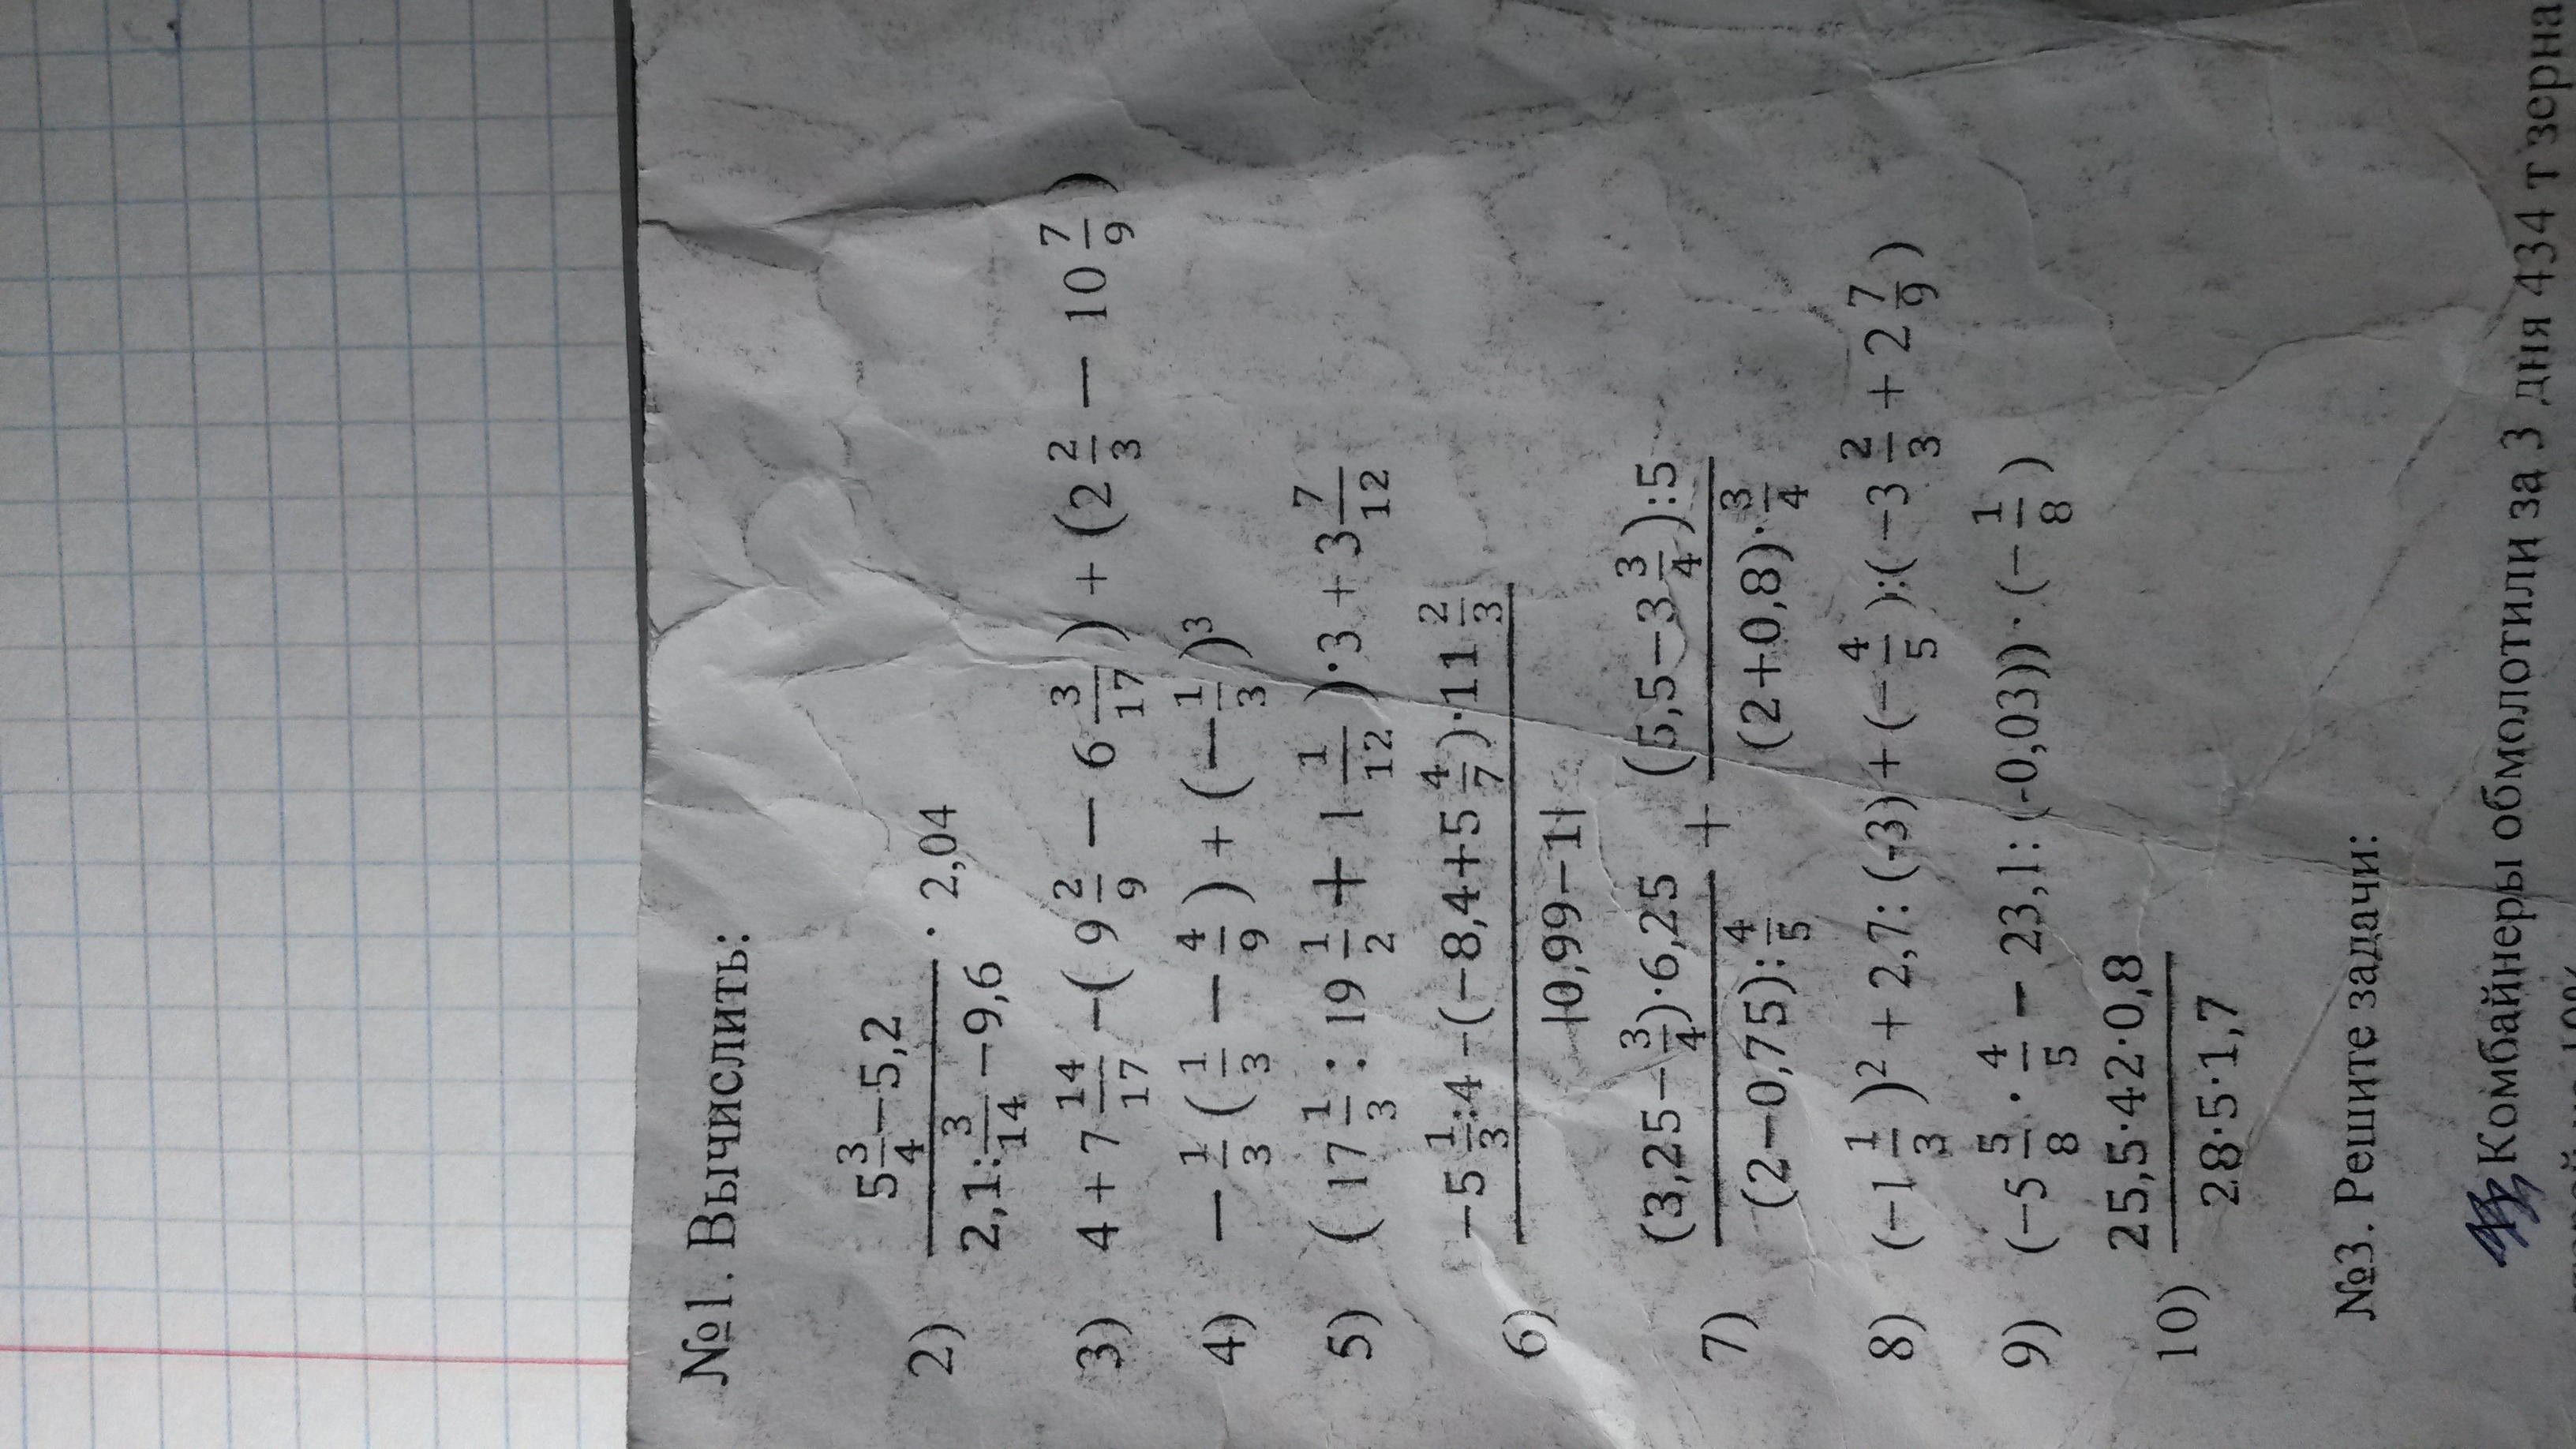 №1. Вычислить:
2) (5 3/4 − 5,2)/(2,1: 3/14 − 9,6) · 2,04
3) 4 + 7 14/17 − (9 2/9 − 6 3/17) + (2 2/3 − 10 7/9)
4) − 1/3 (1/3 − 4/9) + (− 1/3)³
5) (17 1/3 : 19 1/2 + 1 1/12) · 3 + 3 7/12
6) (−5 1/3 :4 − (−8,4+5 4/7) · 11 2/3)/|0,99−1|
7) ((3,25− 3/4)·6,25)/((2−0,75): 4/5) + ((5,5−3 3/4):5)/((2+0,8)· 3/4)
8) (−1 1/3)² + 2,7: (-3) + (− 4/5):(−3 2/3 + 2 7/9)
9) (−5 5/8 · 4/5 − 23,1: (-0,03)) · (− 1/8)
10) (25,5·42·0,8)/(28·5·1,7)
№3. Решите задачи:
Комбайнеры обмолотили за 3 дня 434 т зерна